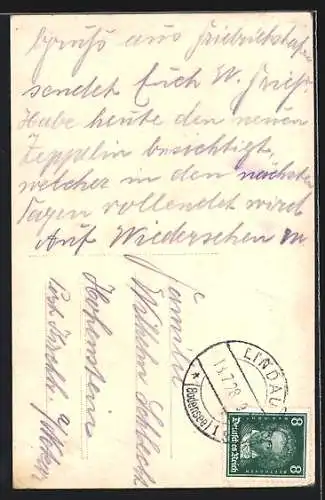 Gruss aus Friedrichshafen
sendet Euch W.
Habe heute den neuen
Zeppelin besichtigt,
welcher in den nächsten
Tagen vollendet wird
Auf Wiedersehen
Familie
Wilhelm
Hohenstein
Post
LINDAU
13.7.28
* (Bodensee) 1
8 8
Deutsches Reich
BEETHOVEN